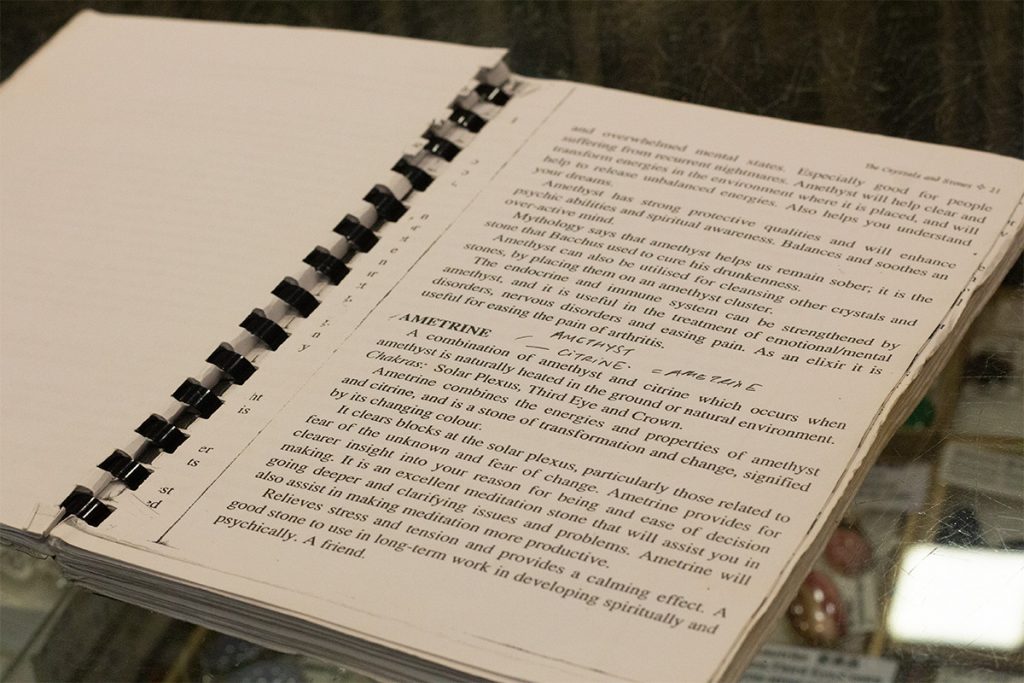 The Crystals and Stones ✣ 11
and overwhelmed mental states. Especially good for people
suffering from recurrent nightmares. Amethyst will help clear and
transform energies in the environment where it is placed, and will
help to release unbalanced energies. Also helps you understand
your dreams.
Amethyst has strong protective qualities and will enhance
psychic abilities and spiritual awareness. Balances and soothes an
over-active mind.
Mythology says that amethyst helps us remain sober; it is the
stone that Bacchus used to cure his drunkenness.
Amethyst can also be utilised for cleansing other crystals and
stones, by placing them on an amethyst cluster.
The endocrine and immune system can be strengthened by
amethyst, and it is useful in the treatment of emotional/mental
disorders, nervous disorders and easing pain. As an elixir it is
useful for easing the pain of arthritis.
AMETRINE
AMETHYST
CITRINE. = AMETRINE
A combination of amethyst and citrine which occurs when
amethyst is naturally heated in the ground or natural environment.
Chakras: Solar Plexus, Third Eye and Crown.
Ametrine combines the energies and properties of amethyst
and citrine, and is a stone of transformation and change, signified
by its changing colour.
It clears blocks at the solar plexus, particularly those related to
fear of the unknown and fear of change. Ametrine provides for
clearer insight into your reason for being and ease of decision
making. It is an excellent meditation stone that will assist you in
going deeper and clarifying issues and problems. Ametrine will
also assist in making meditation more productive.
Relieves stress and tension and provides a calming effect. A
good stone to use in long-term work in developing spiritually and
psychically. A friend.